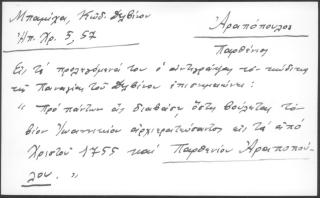 Μπαμίχα, Κώδ. Δελβίνου
Ἠπ. Χρ. 5, 57
Ἀραπόπουλος
Παρθένιος
Εἰς τὰ προλεγόμενά του ὁ ἀντιγράψας τὸν κώδικα
τῆς Παναγίας τοῦ Δελβίνου ἐπισημειώνει:
" Πρὸ πάντων ἂς διαβάσῃ ὅστις βούλεται τὸν
βίον Ἰωαννικίου ἀρχιερατεύσαντος εἰς τὰ ἀπὸ
Χριστοῦ 1755 καὶ Παρθενίου Ἀραποπού-
λου. "